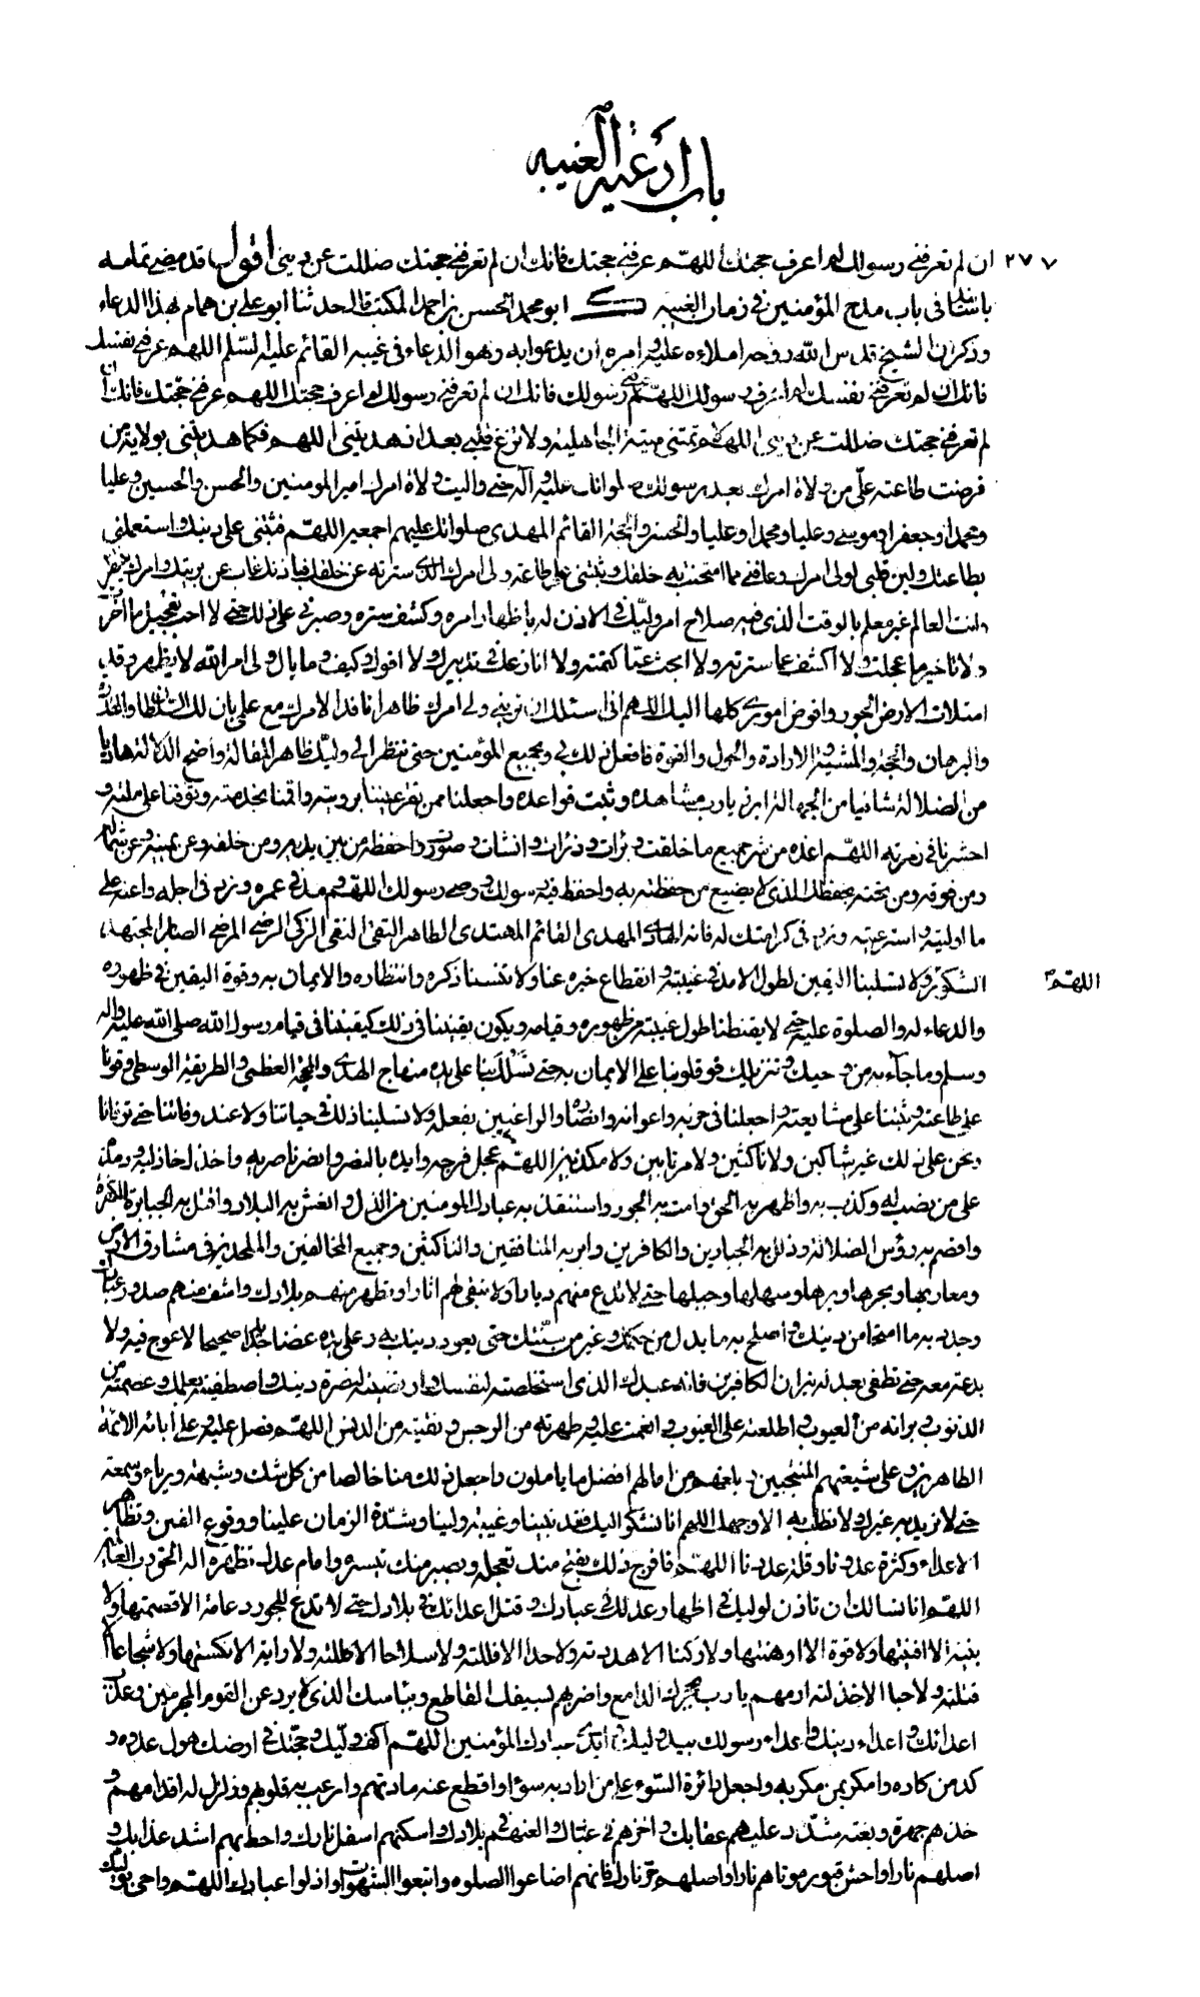 باب ادعية الغيبة
٢٧٧ ان لم تعرفني رسولك لم اعرف حجتك اللهم عرفني حجتك فانك ان لم تعرفني حجتك ضللت عن ديني اقول قد مضى تمامه
في باب مدح المؤمنين في زمان الغيبة ك ابو محمد الحسن بن احمد المكتب قال حدثنا ابو علي بن همام بهذا الدعاء
وذكر ان الشيخ قدس الله روحه املاه عليه وامره ان يدعوا به وهو الدعاء في غيبة القائم عليه السلم اللهم عرفني نفسك
فانك ان لم تعرفني نفسك لم اعرف رسولك اللهم عرفني رسولك فانك ان لم تعرفني رسولك لم اعرف حجتك اللهم عرفني حجتك فانك ان
لم تعرفني حجتك ضللت عن ديني اللهم لا تمتني ميتة الجاهلية ولا تزغ قلبي بعد اذ هديتني اللهم فكما هديتني بولاية من
فرضت طاعته علي من ولاة امرك بعد رسولك صلواتك عليه وآله حتى واليت ولاة امرك امير المومنين والحسن والحسين وعليا
ومحمدا وجعفرا وموسى وعليا ومحمدا وعليا والحسن والحجة القائم المهدي صلواتك عليهم اجمعين اللهم فثبتني على دينك واستعملني
بطاعتك ولين قلبي لولي امرك وعافني مما امتحنت به خلقك وثبتني على طاعة ولي امرك الذي سترته عن خلقك فباذنك غاب عن بريتك وامرك ينتظر
وانت العالم غير معلم بالوقت الذي فيه صلاح امر وليك في الاذن له باظهار امره وكشف ستره وصبرني على ذلك حتى لا احب تعجيل ما اخرت
ولا تاخير ما عجلت ولا اكشف عما سترته ولا ابحث عما كتمته ولا انازعك في تدبيرك ولا اقول لم وكيف وما بال ولي امر الله لا يظهر وقد
امتلات الارض من الجور وافوض اموري كلها اليك اللهم اني اسئلك ان تريني ولي امرك ظاهرا نافذا لامرك مع علمي بان لك السلطان والقدرة
والبرهان والحجة والمشية والارادة والحول والقوة فافعل ذلك بي وبجميع المؤمنين حتى ننظر الى وليك ظاهر المقالة واضح الدلالة هاديا
من الضلالة شافيا من الجهالة ابرز يا رب مشاهده وثبت قواعده واجعلنا ممن تقر عيننا برويته واقمنا بخدمته وتوفنا على ملته و
احشرنا في زمرته اللهم اعذه من شر جميع ما خلقت وبرأت وذرأت وانشات وصورت واحفظه من بين يديه ومن خلفه وعن يمينه وعن شماله
ومن فوقه ومن تحته بحفظك الذي لا يضيع من حفظته به واحفظ فيه رسولك ووصي رسولك اللهم ومد في عمره وزد في اجله واعنه على
ما اوليته واسترعيته وزد في كرامتك له فانه الهادي المهدي القائم المهتدي الطاهر التقي النقي الزكي الرضي المرضي الصابر المجتهد
الشكور ولا تسلبنا اليقين لطول الامد في غيبته وانقطاع خبره عنا ولا تنسنا ذكره وانتظاره والايمان به وقوة اليقين في ظهوره
اللهم
والدعاء له والصلوة عليه حتى لا يقنطنا طول غيبته من ظهوره وقيامه ويكون يقيننا في ذلك كيقيننا في قيام رسول الله صلى الله عليه واله
وسلم وما جاء به من وحيك وتنزيلك فقو قلوبنا على الايمان به حتى تسلك بنا على يده منهاج الهدى والحجة العظمى والطريقة الوسطى وقونا
على طاعته وثبتنا على مشايعته واجعلنا في حزبه واعوانه وانصاره والراغبين بفعله ولا تسلبنا ذلك في حياتنا ولا عند وفاتنا حتى توفانا
ونحن على ذلك غير شاكين ولا ناكثين ولا مرتابين ولا مكذبين اللهم عجل فرجه وايده بالنصر وانصر ناصريه واخذل خاذليه ودمر
على من نصب له وكذب به واظهر به الحق وامت به الجور واستنقذ به عبادك المومنين من الذل وانعش به البلاد واقتل به الجبابرة الكفرة
واقصم به رؤس الضلالة وذلل به الجبارين والكافرين وابر به المنافقين والناكثين وجميع المخالفين والملحدين في مشارق الارض
ومغاربها وبحرها وبرها وسهلها وجبلها حتى لا تدع منهم ديارا ولا تبقي لهم اثارا وتطهر منهم بلادك واشف منهم صدور عبادك
وجدد به ما امتحا من دينك واصلح به ما بدل من حكمك وغير من سنتك حتى يعود دينك به وعلى يده غضا جديدا صحيحا لا عوج فيه ولا
بدعة معه حتى تطفي بعدله نيران الكافرين فانه عبدك الذي استخلصته لنفسك وارتضيته لنصرة دينك واصطفيته بعلمك وعصمته من
الذنوب وبراته من العيوب واطلعته على الغيوب وانعمت عليه وطهرته من الرجس ونقيته من الدنس اللهم فصل عليه وعلى ابائه الائمة
الطاهرين وعلى شيعتهم المنتجبين وبلغهم من امالهم افضل ما ياملون واجعل ذلك منا خالصا من كل شك وشبهة ورياء وسمعة
حتى لا نريد به غيرك ولا نطلب به الا وجهك اللهم انا نشكو اليك فقد نبينا وغيبة ولينا وشدة الزمان علينا ووقوع الفتن وتظاهر
الاعداء وكثرة عدونا وقلة عددنا اللهم فافرج ذلك بفتح منك تعجله وبصبر منك تيسره وامام عدل تظهره اله الحق رب العالمين
اللهم انا نسالك ان تاذن لوليك في اظهار عدلك في عبادك وقتل اعدائك في بلادك حتى لا تدع للجور دعامة الا قصمتها ولا
بنية الا افنيتها ولا قوة الا اوهنتها ولا ركنا الا هددته ولا حدا الا فللته ولا سلاحا الا كللته ولا راية الا نكستها ولا شجاعا الا
قتلته ولا حيا الا خذلته ارمهم يا رب بحجرك الدامغ واضربهم بسيفك القاطع وبباسك الذي لا يرد عن القوم المجرمين وعذب
اعدائك واعداء دينك واعداء رسولك بيد وليك وايدي عبادك المؤمنين اللهم اكف وليك وحجتك في ارضك هول عدوه و
كد من كاده وامكر بمن مكر به واجعل دائرة السوء على من اراد به سوءا واقطع عنه مادتهم وارعب به قلوبهم وزلزل له اقدامهم و
خذهم جهرة وبغتة شدد عليهم عقابك واخزهم في عبادك والعنهم في بلادك واسكنهم اسفل نارك واحط بهم اشد عذابك و
اصلهم نارا واحش قبور موتاهم نارا واصلهم حر نارك فانهم اضاعوا الصلوة واتبعوا الشهوات واذلوا عبادك اللهم واحي بوليك